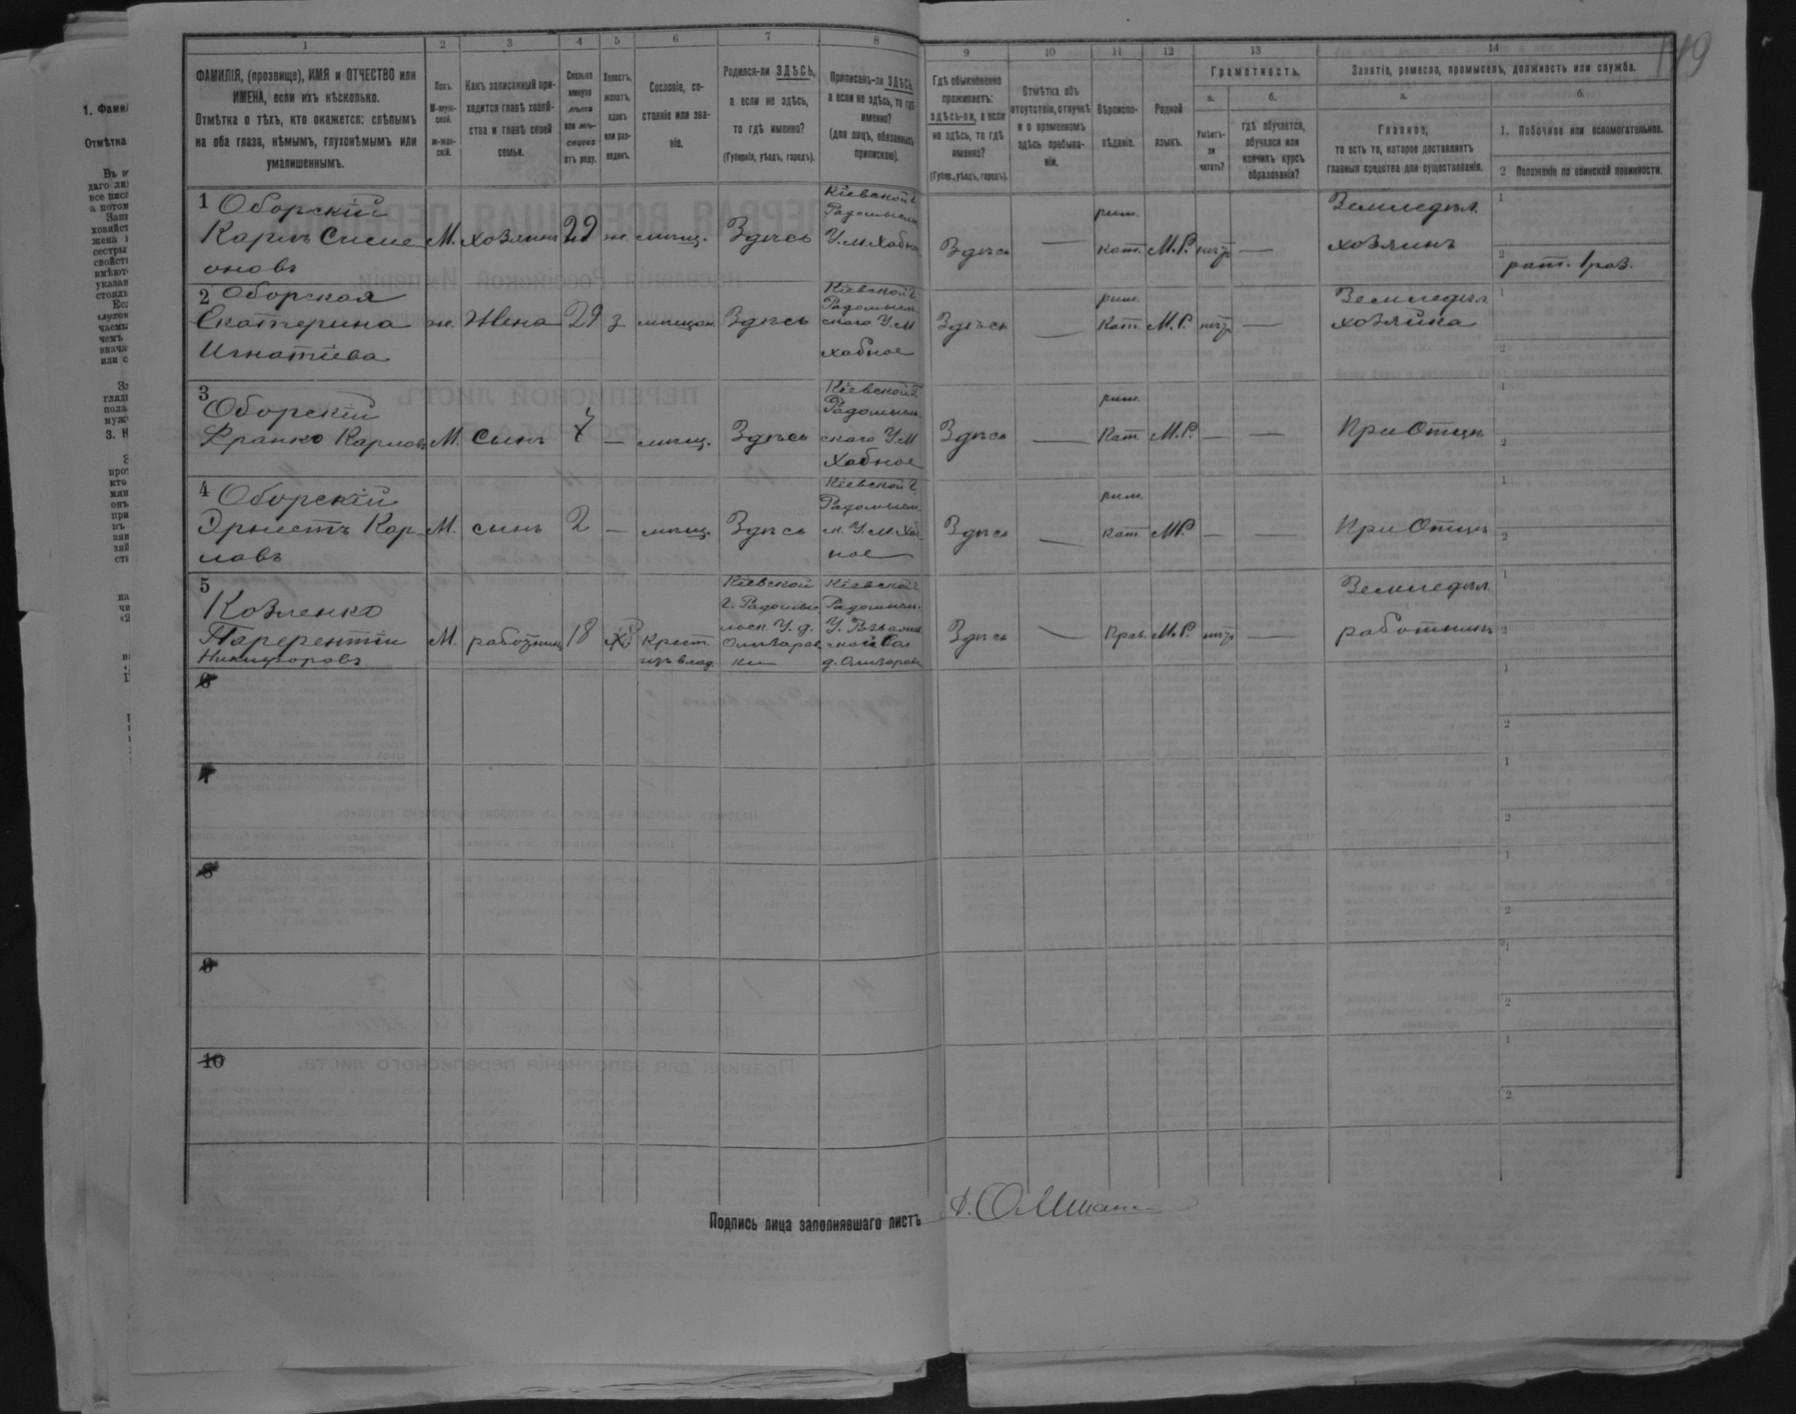 1 2 3 4 5 6 7 8 9 10 11 12 13 14
149
ФАМИЛІЯ, (прозвище), ИМЯ и ОТЧЕСТВО или
ИМЕНА, если ихъ нѣсколько.
Отмѣтка о тѣхъ, кто окажется: слѣпымъ
на оба глаза, нѣмымъ, глухонѣмымъ или
умалишеннымъ.
Полъ.
М-муж-
ской.
Ж-жен-
скій.
Какъ записанный при-
ходится главѣ хозяй-
ства и главѣ своей
семьи.
Сколько
минуло
лѣтъ
или мѣ-
сяцевъ
отъ роду.
Холостъ,
женатъ,
вдовъ
или раз-
веденъ.
Сословіе, со-
стояніе или зва-
ніе.
Родился-ли ЗДѢСЬ,
а если не здѣсь,
то гдѣ именно?
(Губернія, уѣздъ, городъ).
Приписанъ-ли ЗДѢСЬ,
а если не здѣсь, то гдѣ
именно?
(для лицъ, обязанныхъ
припискою).
Гдѣ обыкновенно
проживаетъ:
здѣсь-ли, а если
не здѣсь, то гдѣ
именно?
(Губер., уѣздъ, городъ).
Отмѣтка объ
отсутствіи, отлучкѣ
и о временномъ
здѣсь пребыва-
ніи.
Вѣроиспо-
вѣданіе.
Родной
языкъ.
Грамотность.
а.
Умѣетъ-
ли
читать?
б.
гдѣ обучается,
обучался или
кончилъ курсъ
образованія?
Занятіе, ремесло, промыселъ, должность или служба.
а.
Главное,
то есть то, которое доставляетъ
главныя средства для существованія.
б.
1. Побочное или вспомогательное.
2 Положеніе по воинской повинности.
1 Оборскій
Карлъ Симе
оновъ
М. хозяинъ 29 ж. мѣщ. Здѣсь
Кіевской г.
Радомысл.
У. м. Хабно
Здѣсь — рим.
кат. М.Р. нѣтъ —
Земледѣл.
хозяинъ
1
2
рат. 1 раз.
2 Оборская
Екатерина
Игнатіева
ж. Жена 29 з. мѣщан. Здѣсь
Кіевской г.
Радомысл
скаго У. М
Хабное
Здѣсь — рим.
Кат М.Р. нѣтъ —
Земледѣл.
хозяйка
1
2
3
Оборскій
Франко Карловъ
М. сынъ — мѣщ. Здѣсь
Кіевской г.
Радомысл
скаго У М
Хабное
Здѣсь — рим.
Кат М.Р. — —
При Отцѣ
1
2
4 Оборскій
Эрнестъ Кар
ловъ
М. сынъ 2 — мѣщ. Здѣсь
Кіевской г.
Радомысл.
У. м. Хаб
ное
Здѣсь — рим.
кат М.Р. — —
При Отцѣ
1
2
5
Козленко
Терентій
Никифоровъ
М. работник 18 Х Крест.
изъ влад.
Кіевской
г. Радомыс
льск У. д.
Олизаров
ки
Кіевской г.
Радомысл.
У.
д. Олизаров
Здѣсь — Прав. М.Р. нѣтъ —
Земледѣл.
работникъ
1
2
6
1
2
7
1
2
8
1
2
9
1
2
10
1
2
Подпись лица заполнявшаго листъ